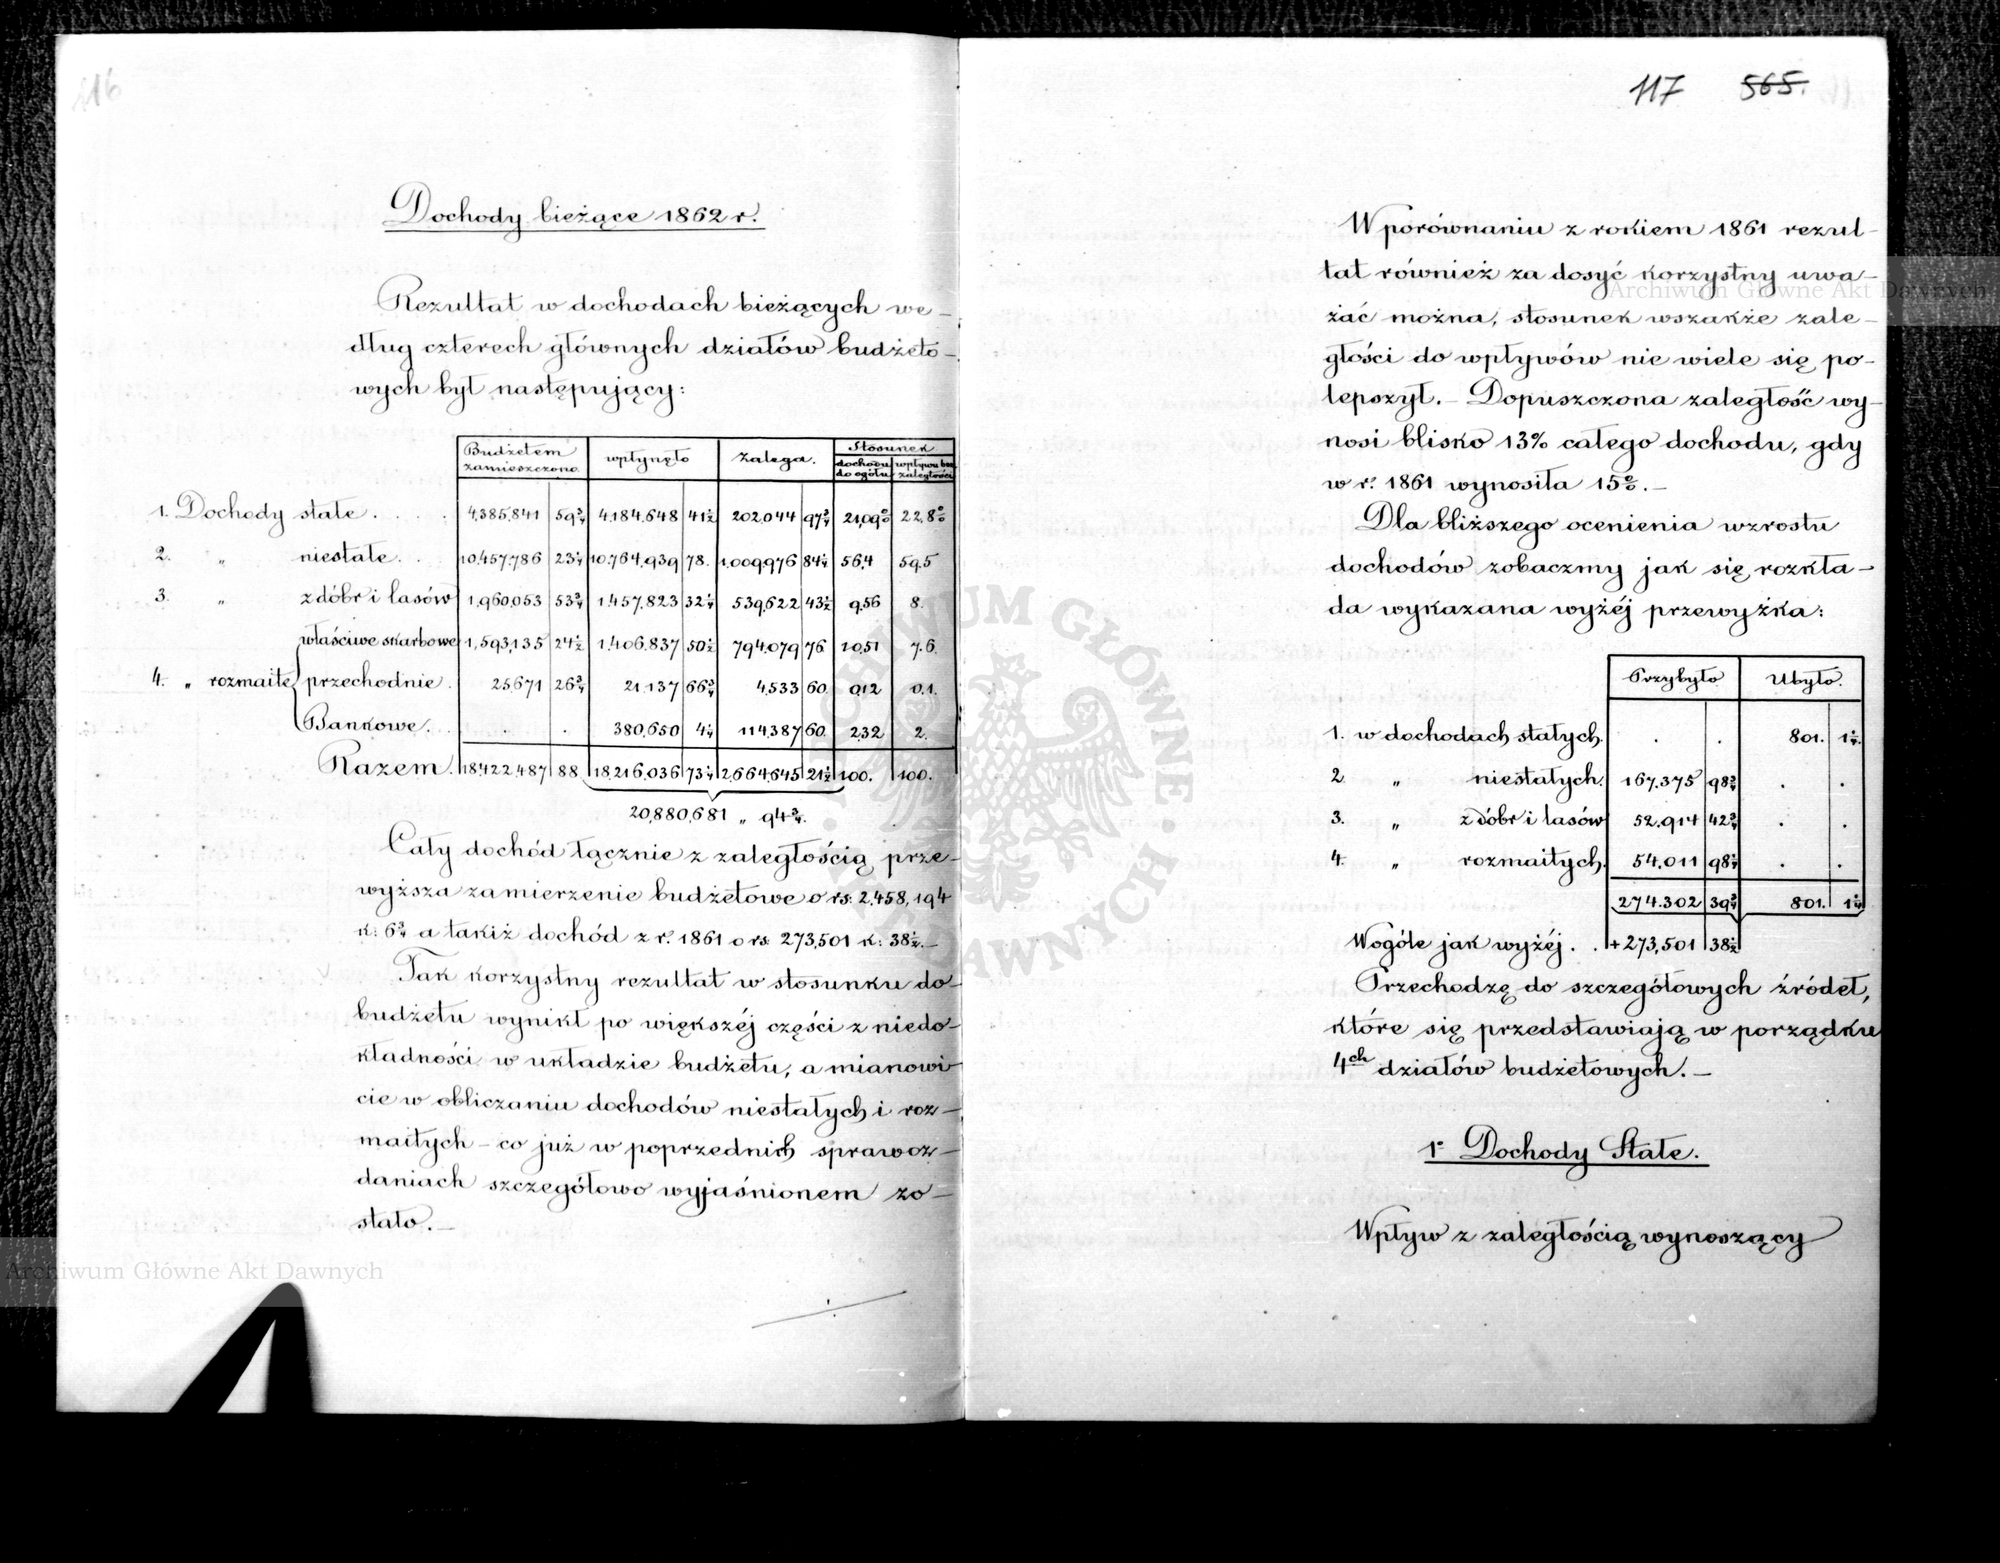 116
Dochody bieżące 1862 r.
Rezultat w dochodach bieżących we-
dług czterech głównych działów budżeto-
wych był następujący:
Budżetem zamieszczono | wpłynęło | zalega. | Stosunek
dochodu do ogółu | wpływu bez zaległości
1. Dochody stałe . . . . 4,385,841 | 59¾ | 4.184.648 | 41½ | 202.044 | 97¾ | 21,09% | 22,8%
2. „ niestałe . . 10,457,786 | 23¼ | 10.764,939 | 78. | 1,009,976 | 84¼ | 56,4 | 59,5
3. „ z dóbr i lasów 1,960,053 | 53¾ | 1.457.823 | 32¼ | 539,622 | 43½ | 9,56 | 8.
właściwe skarbowe 1,593,135 | 24½ | 1.406.837 | 50½ | 794.079 | 76 | 10,51 | 7.6.
4. „ rozmaite przechodnie . 25,671 | 26¾ | 21.137 | 66¾ | 4,533 | 60. | 0,12 | 0,1.
Bankowe. . . . 380,650 | 4¼ | 114,387 | 60. | 2,32 | 2.
Razem. 18,422,487 | 88 | 18,216,036 | 73¼ | 2,664,645 | 21½ | 100. | 100.
20,880,681 „ 94¾.
Cały dochód łącznie z zaległością prze-
wyższa zamierzenie budżetowe o rs: 2,458,194
k: 6¾ a takiż dochód z r. 1861 o rs: 273,501 k: 38½.–
Tak korzystny rezultat w stosunku do
budżetu wynikł po większéj części z niedo-
kładności w układzie budżetu, a mianowi-
cie w obliczaniu dochodów niestałych i roz-
maitych – co już w poprzednich sprawoz-
daniach szczegółowo wyjaśnionem zo-
stało.–
117 565.
W porównaniu z rokiem 1861 rezul-
tat również za dosyć korzystny uwa-
żać można, stosunek wszakże zale-
głości do wpływów nie wiele się po-
lepszył.– Dopuszczona zaległość wy-
nosi blisko 13% całego dochodu, gdy
w r. 1861 wynosiła 15%.–
Dla bliższego ocenienia wzrostu
dochodów zobaczmy jak się rozkła-
da wykazana wyżéj przewyżka:
Przybyło | Ubyło.
1. w dochodach stałych. . | . | 801. | 1¼.
2. „ niestałych. 167.375 | 98¾ | . | .
3. „ z dóbr i lasów 52.914 | 42¾ | . | .
4. „ rozmaitych. 54.011 | 98¼ | . | .
274.302 | 39¾ | 801. | 1¼
Wogóle jak wyżéj . . +273,501 | 38½
Przechodzę do szczegółowych źródeł,
które się przedstawiają w porządku
4ch działów budżetowych.–
1° Dochody Stałe.
Wpływ z zaległością wynoszący
Archiwum Główne Akt Dawnych
Archiwum Główne Akt Dawnych
ARCHIWUM GŁÓWNE AKT DAWNYCH